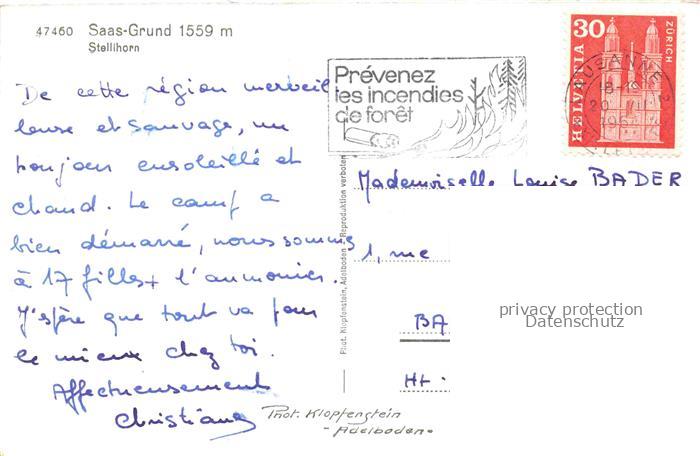 47460 Saas-Grund 1559 m
Stellihorn
De cette région merveil
leuse et sauvage, un
bonjour ensoleillé et
chaud. Le camp a
bien démarré, nous sommes
à 17 filles + l'aumonier.
J'espère que tout va pour
le mieux chez toi.
Affectueusement
Christiane
Phot. Klopfenstein
- Adelboden -
Phot. Klopfenstein, Adelboden - Reproduktion verboten
Prévenez
les incendies
de forêt
30
HELVETIA
ZÜRICH
LAUSANNE 2
Mademoiselle Louise BADER
1, rue
BA
Ht-
privacy protection
Datenschutz